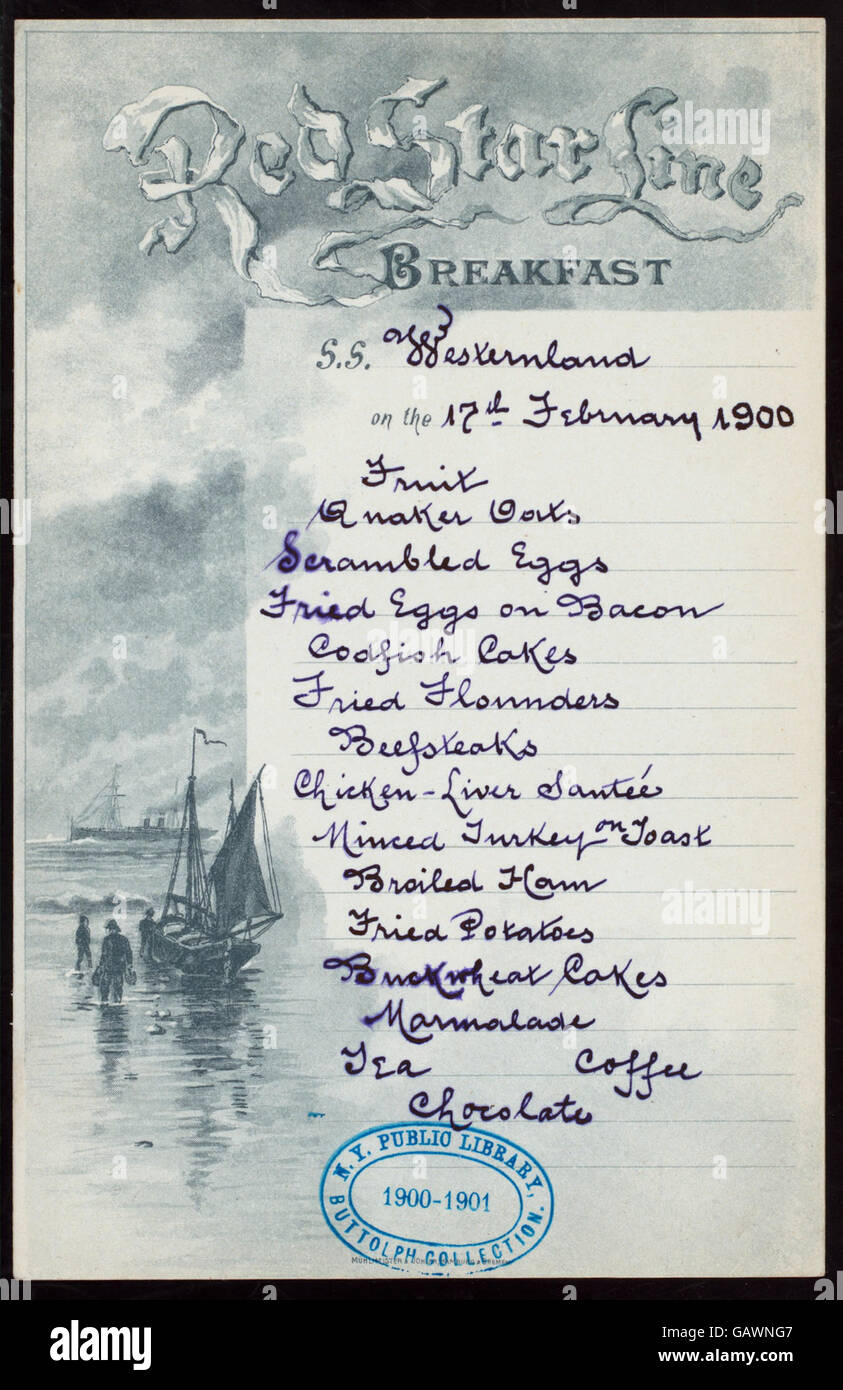 Red Star Line
BREAKFAST
S.S. Westernland
on the 17th February 1900
Fruit
Quaker Oats
Scrambled Eggs
Fried Eggs on Bacon
Codfish Cakes
Fried Flounders
Beefsteaks
Chicken-Liver Sautéé
Minced Turkey on Toast
Broiled Ham
Fried Potatoes
Buckwheat Cakes
Marmalade
Tea Coffee
Chocolate
N.Y. PUBLIC LIBRARY,
1900-1901
BUTTOLPH COLLECTION.
alamy
alamy stock photo
GAWNG7
www.alamy.com